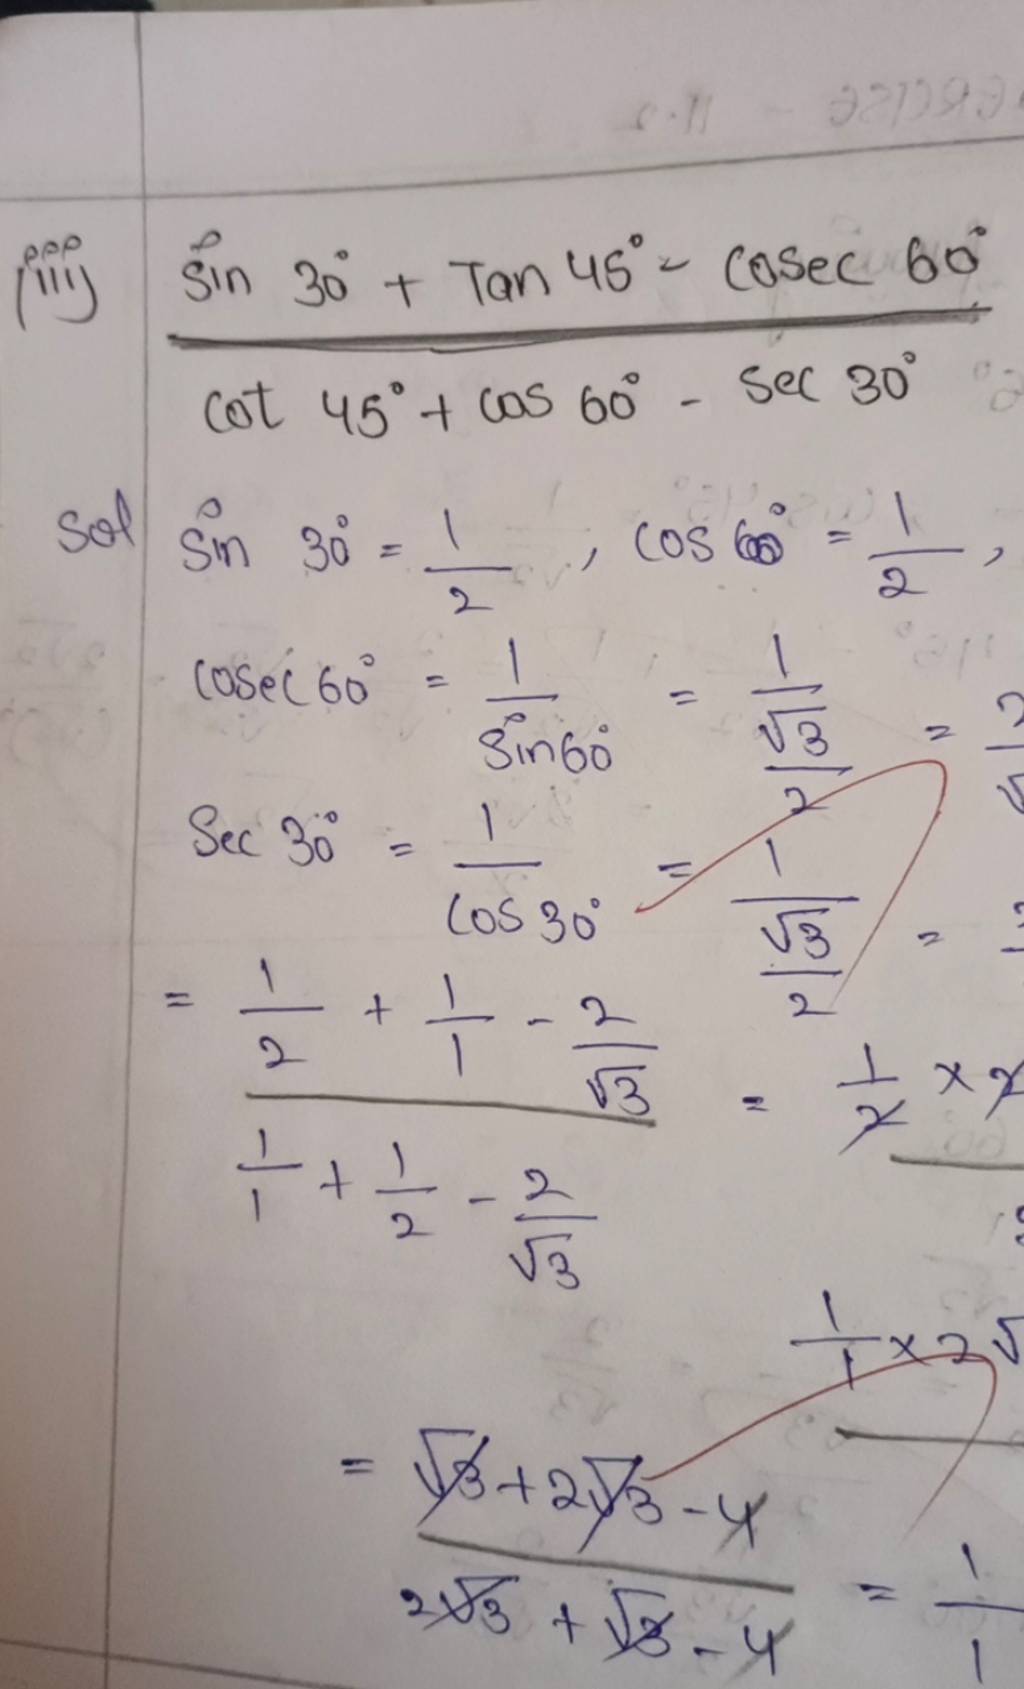 (iii) Sin 30° + Tan 45° - Cosec 60°
Cot 45° + Cos 60° - Sec 30°
Sol Sin 30° = 1/2 , Cos 60° = 1/2 ,
Cosec 60° = 1/Sin 60° = 1/(√3/2) = 2/√
Sec 30° = 1/Cos 30° = 1/(√3/2) =
= 1/2 + 1/1 - 2/√3 = 1/2 × 2
1/1 + 1/2 - 2/√3
1/1 × 2√
= √3 + 2√3 - 4
2√3 + √3 - 4 = 1/1